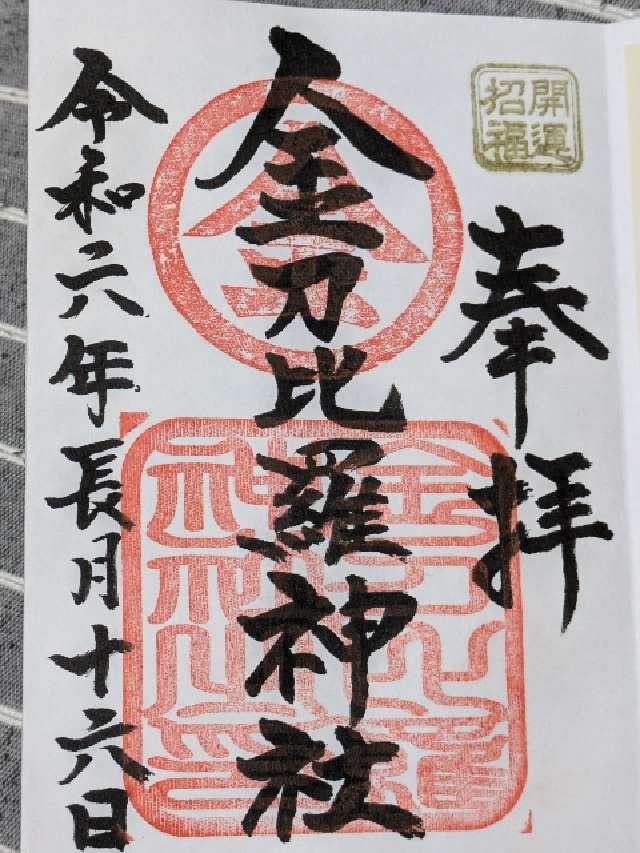 開運
招福
奉拝
金刀比羅神社
令和六年長月十六日